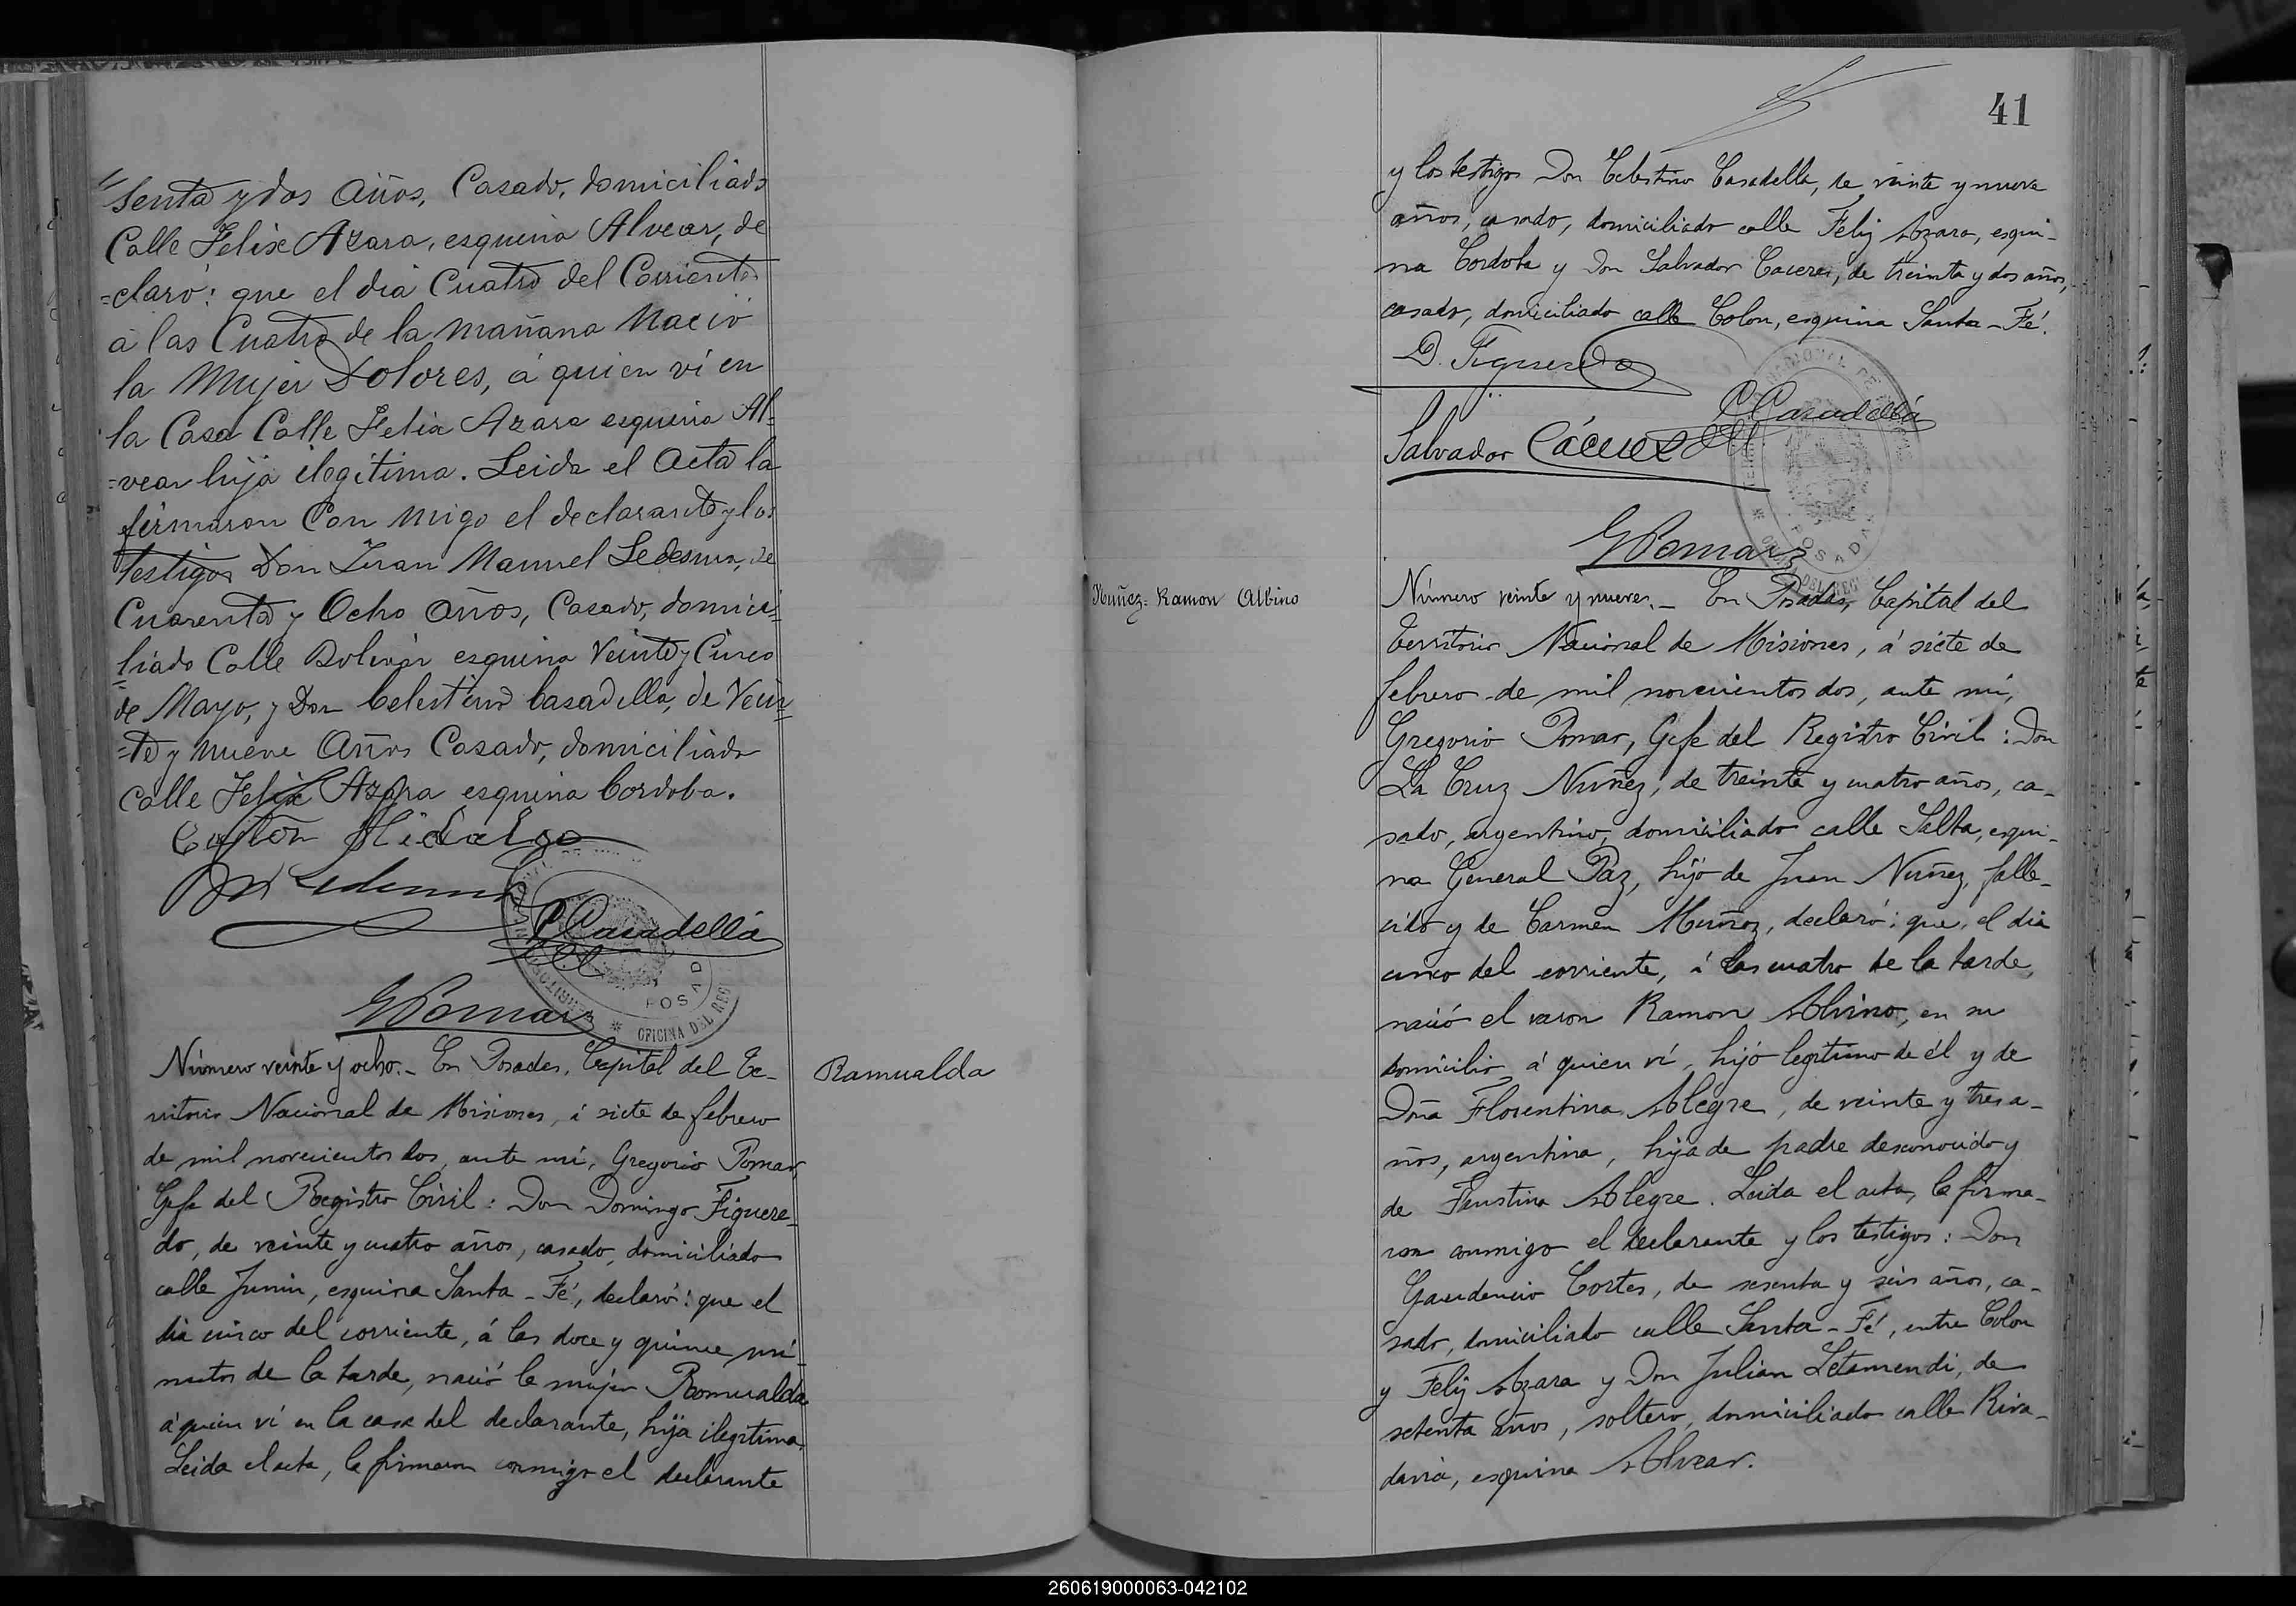 senta y dos Años, Casado, domiciliado
Calle Felix Azara, esquina Alvear, de
=claró: que el dia Cuatro del Corriente
á las Cuatro de la mañana Nació
la Mujer Dolores, á quien ví en
la Casa Calle Felix Azara esquina Al=
=vear hija ilegitima. Leida el Acta la
firmaron Con migo el declarante y los
testigos Don Juan Manuel Ledesma, de
Cuarenta y Ocho Años, Casado, domici=
liado Calle Bolivar esquina Veinte y Cinco
de Mayo, y Don Celestino Casadella, de Vein=
=te y nueve Años Casado, domiciliado
calle Felix Azara esquina Cordoba.
Hidalgo
CCasadellá
GPomar
POSAD
OFICINA DEL REGI
Número veinte y ocho._ En Posadas, Capital del Te-
rritorio Nacional de Misiones, á siete de febrero
de mil novecientos dos, ante mí, Gregorio Pomar,
Gefe del Registro Civil: Don Domingo Figuere-
do, de veinte y cuatro años, casado, domiciliado
calle Junin, esquina Santa-Fé, declaró: que el
dia cinco del corriente, á las doce y quince mi-
nutos de la tarde, nació la mujer Romualda
á quien ví en la casa del declarante, hija ilegitima.
Leida el acta, la firmaron conmigo el declarante
Ramualda
41
y los testigos Don Celestino Casadella, de veinte y nueve
años, casado, domiciliado calle Felix Azara, esqui-
na Cordoba y Don Salvador Caceres, de treinta y dos años,
casado, domiciliado calle Colon, esquina Santa-Fé.
D. Figueredo
CCasadellá
Salvador Cáceres
GPomar
POSADA
Nuñez= Ramon Albino
Número veinte y nueve._ En Posadas, Capital del
Territorio Nacional de Misiones, á siete de
febrero de mil novecientos dos, ante mí,
Gregorio Pomar, Gefe del Registro Civil: Don
La Cruz Nuñez, de treinta y cuatro años, ca-
sado, argentino, domiciliado calle Salta, esqui-
na General Paz, hijo de Juan Nuñez, falle-
cido y de Carmen Muñoz, declaró: que, el dia
cinco del corriente, á las cuatro de la tarde,
nació el varon Ramon Alvino, en su
domicilio, á quien ví, hijo legitimo de él y de
Doña Florentina Alegre, de veinte y tres a-
ños, argentina, hija de padre desconocido y
de Faustina Alegre. Leida el acta, la firma-
ron conmigo el declarante y los testigos: Don
Gaudencio Cortes, de sesenta y seis años, ca-
sado, domiciliado calle Santa-Fé, entre Colon
y Felix Azara y Don Julian Letamendi, de
setenta años, soltero, domiciliado calle Riva-
davia, esquina Alvear.
260619000063-042102